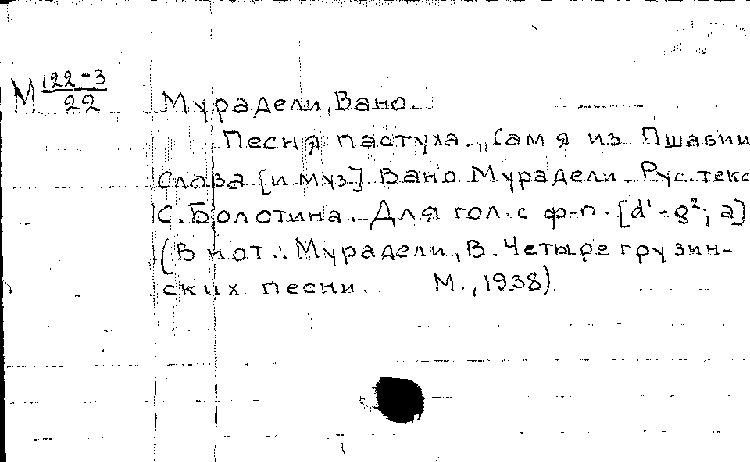 М 122-3/22
Мурадели, Вано.
Песня пастуха. „Сам я из Пшавии
Слова [и муз.] Вано Мурадели. Рус. текс
С. Болотина. Для гол. с ф-п. [d¹-g²; a]
(В нот.: Мурадели, В. Четыре грузин-
ских песни. М., 1938)